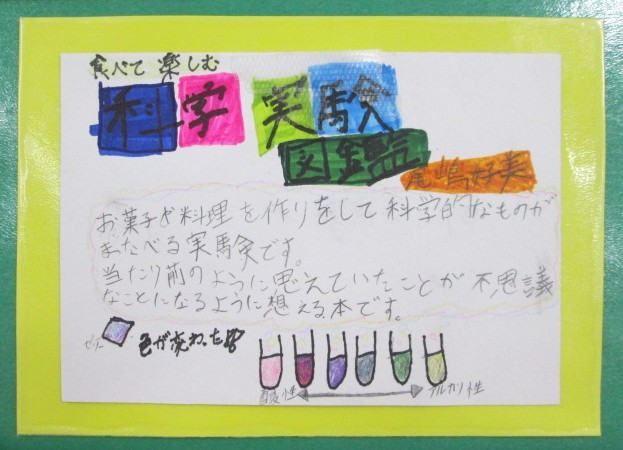 食べて楽しむ
科学実験
図鑑
尾嶋好美
お菓子や料理を作りをして科学的なものが
またべる実験です。
当たり前のように思えていたことが不思議
なことになるように想える本です。
ゼリー
色が変わった!!
酸性
アルカリ性